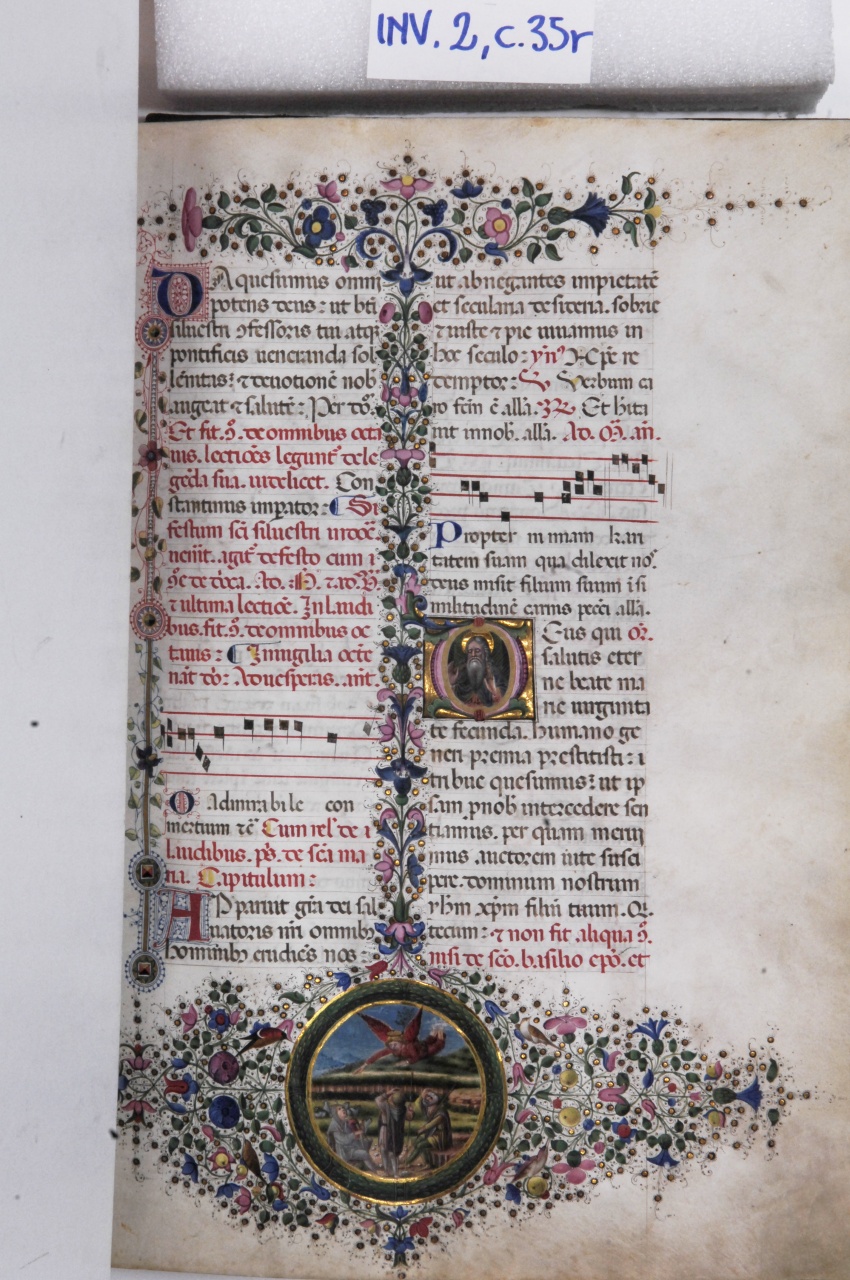 INV. 2, c.35r
DA quesumus omni
potens deus: ut bti
siluestri ɔfessoris tui atqꝫ
pontificis ueneranda sol
lēnitas: ⁊ deuotionē nob
augeat ⁊ salutē: Per dō.
Et fit.ɔ̄. de omnibus octa
uis. lectiōes legunt de le
gēda sua. uidelicet. Con
stantinus impator: Si
festum sci siluestri
de festo cum
⁊ ultima lectiōe. In laudi
bus. fit.ɔ̄. de omnibus oc
tauis: In uigilia octe
Ad uesperas. ant.
O admirabile con
mertium ⁊c̄ Cum rel' de
laudibus. ps. de scā ma
ria. Capitulum:
APparuit grā dei sal
uatoris nri omnibꝫ
hominibꝫ erudiēs nos:
ut abnegantes impietatē
et secularia desideria. sobrie
⁊ iuste ⁊ pie uiuamus in
hoc seculo: ynꝰ Xp̄e re
demptor: Verbum ca
ro fcm̄ ē alla. Et hita
uit in nob. alla. Ad. an.
Propter nimiam kari
tatem suam qua dilexit nos.
deus misit filium suum ī si
militudinē carnis peccī alla.
DEus qui or.
salutis eter
ne beate ma
rie uirginita
te fecunda. humano ge
neri premia prestitisti: t
tribue quesumus: ut ip
sam p nob intercedere sen
tiamus. per quam merui
mus auctorem uite susci
pere. dominum nostrum
yhm xpm filiū tuum. Q.
tecum: ⁊ non fit aliqua ɔ̄.
nisi de scō. basilio epō. et